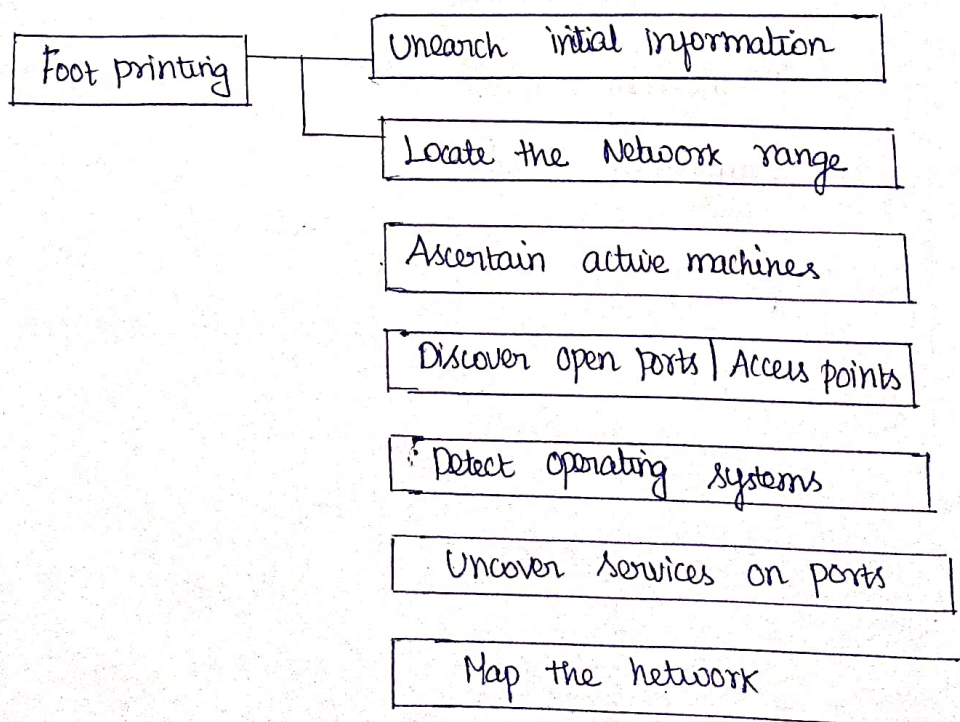 Foot printing
Unearch initial information
Locate the Network range
Ascertain active machines
Discover open ports | Access points
Detect operating systems
Uncover services on ports
Map the network